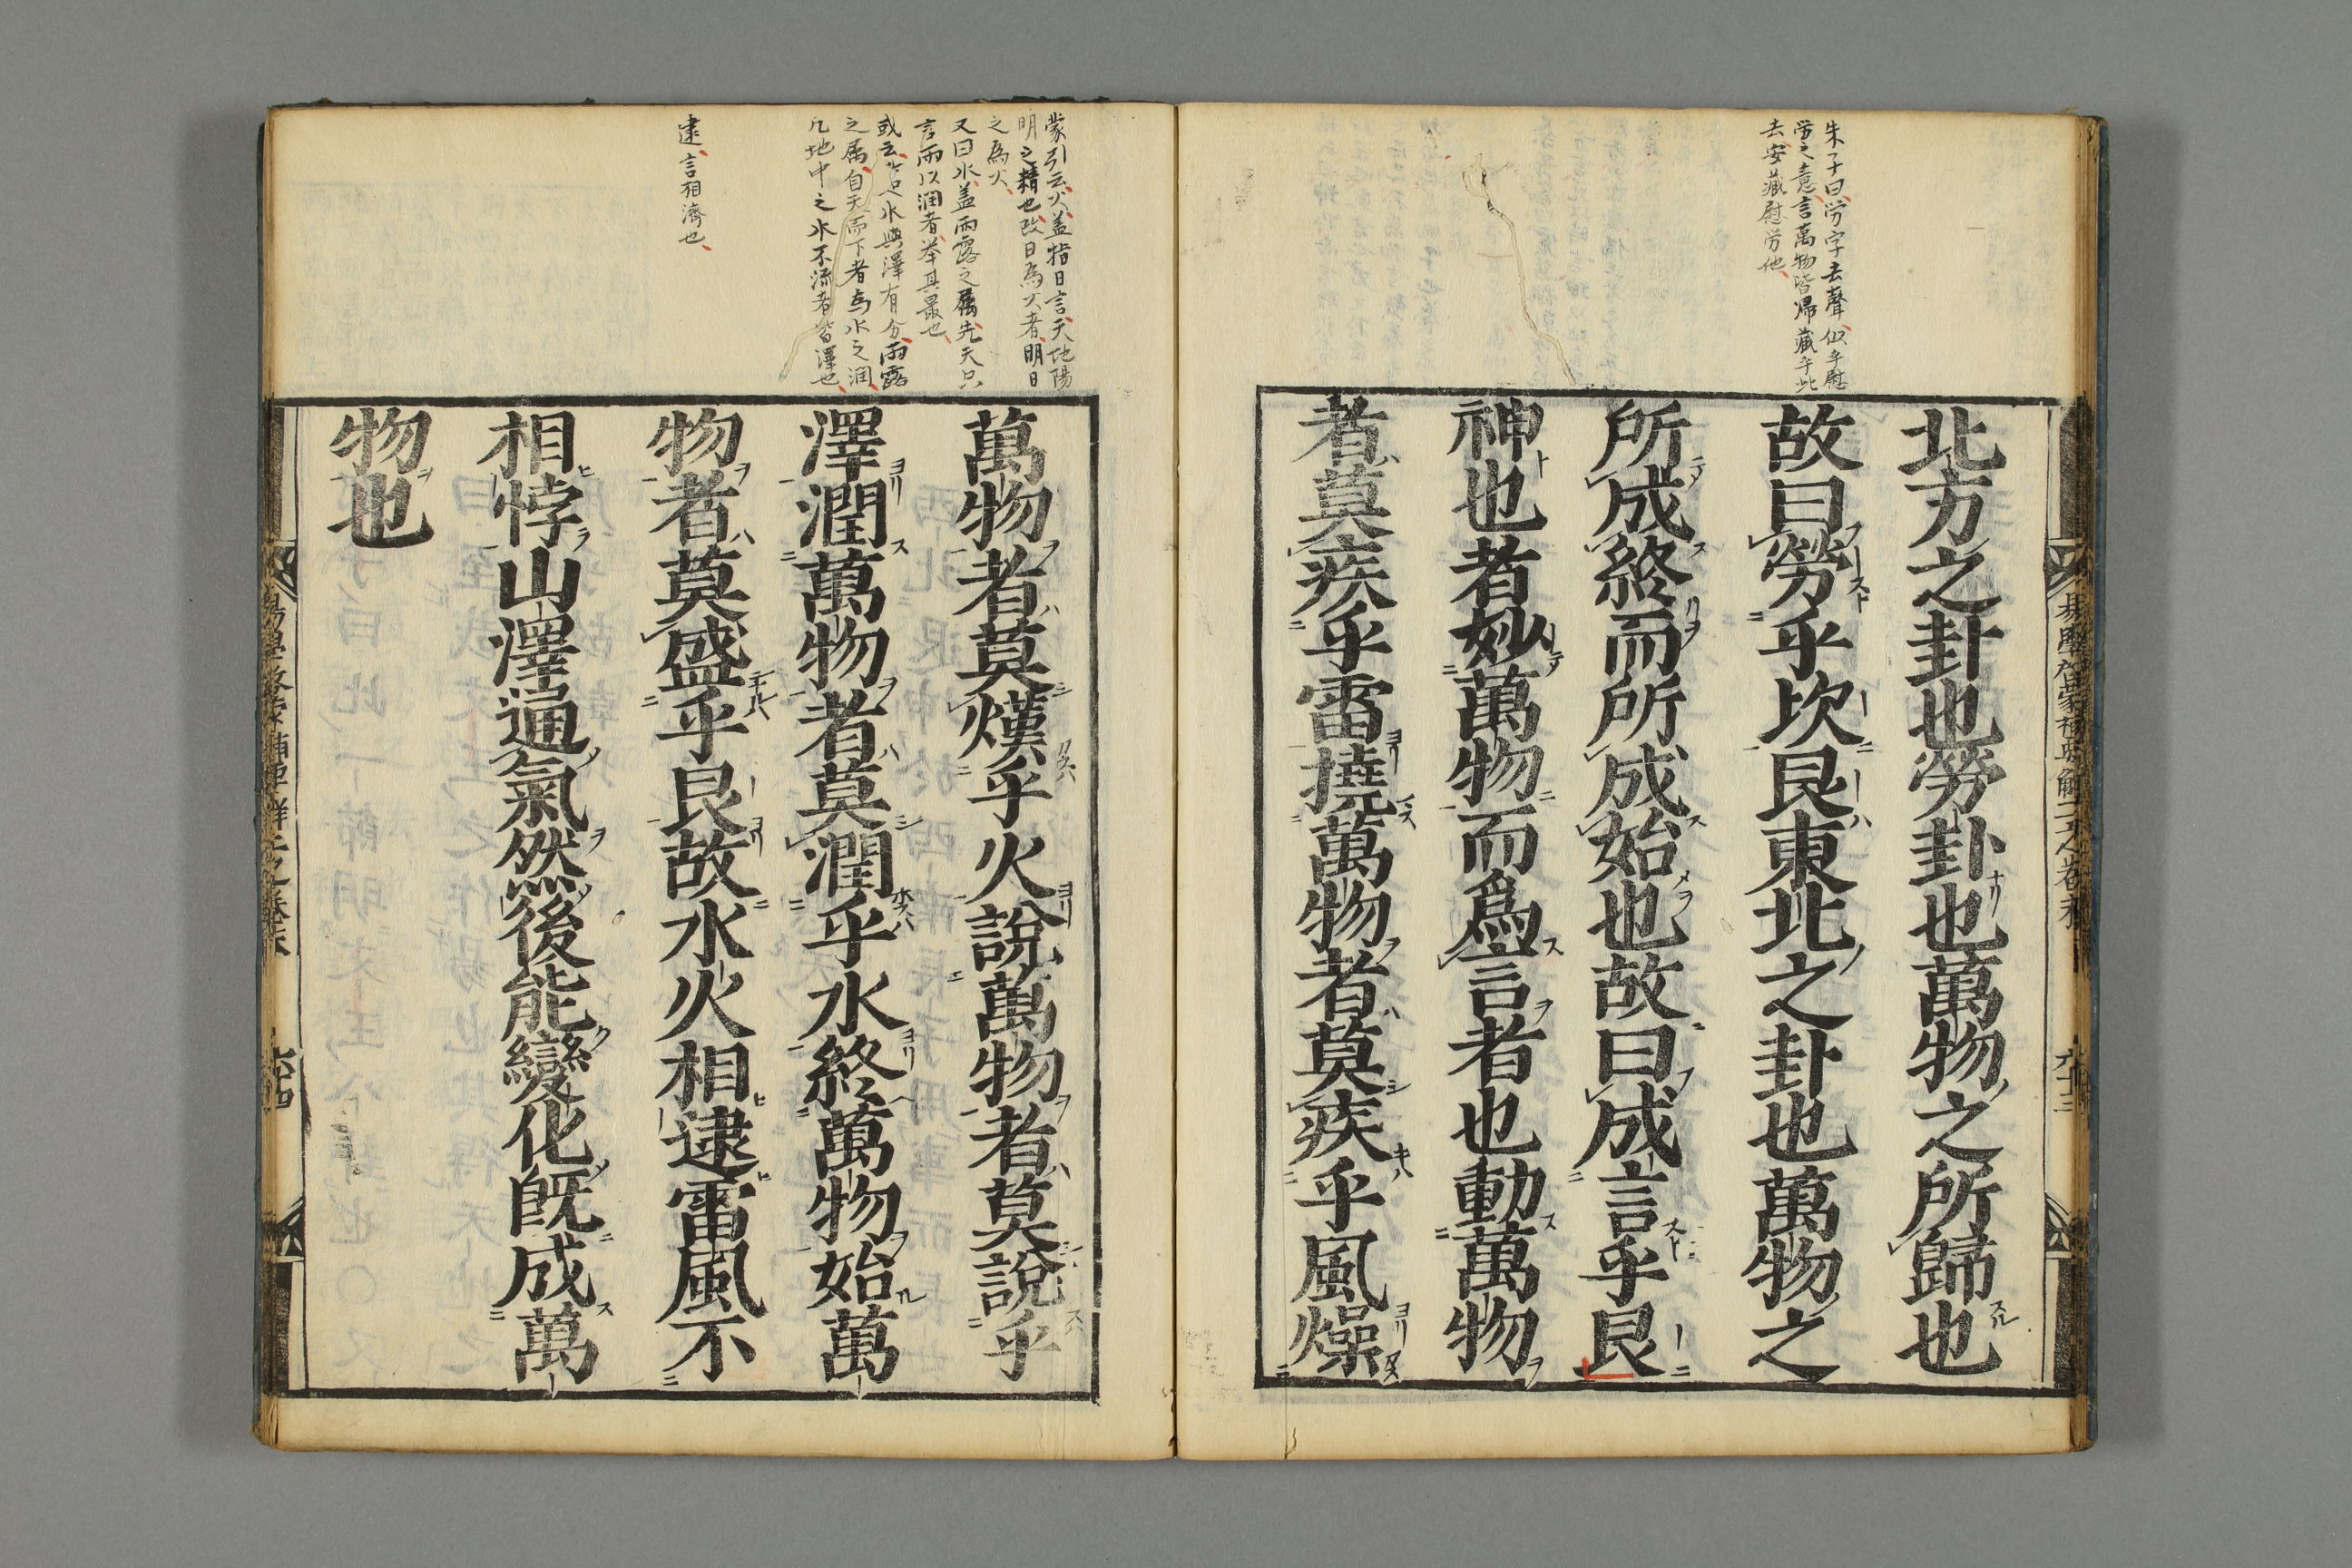 朱子曰労字去聲似乎慰
労之意言萬物皆帰藏乎此
去安藏慰労他
北方之卦也勞卦也萬物之所歸也
故曰勞乎坎艮東北之卦也萬物之
所成終而所成始也故曰成言乎艮
神也者妙萬物而爲言者也動萬物
者莫疾乎雷撓萬物者莫疾乎風燥
蒙引云火蓋指日言天地陽
明之精也故日為火者明日
之為火
又曰水蓋雨露之属先天只
言雨以潤者挙其最也
或云此是水與澤有分雨露
之属自天而下者為水之潤
凡地中之水不流者皆澤也
逮言相濟也
萬物者莫熯乎火說萬物者莫說乎
澤潤萬物者莫潤乎水終萬物始萬
物者莫盛乎艮故水火相逮雷風不
相悖山澤通氣然後能變化旣成萬
物也